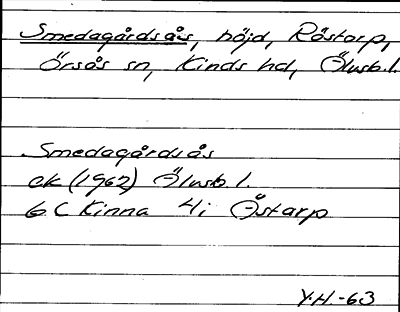 Smedagårdsås, höjd, Röstorp,
Örsås sn, Kinds hd, Älvsb. l.
Smedagårdsås
ek (1962) Älvsb. l.
6 C Kinna 4i Östarp
Y.H.-63